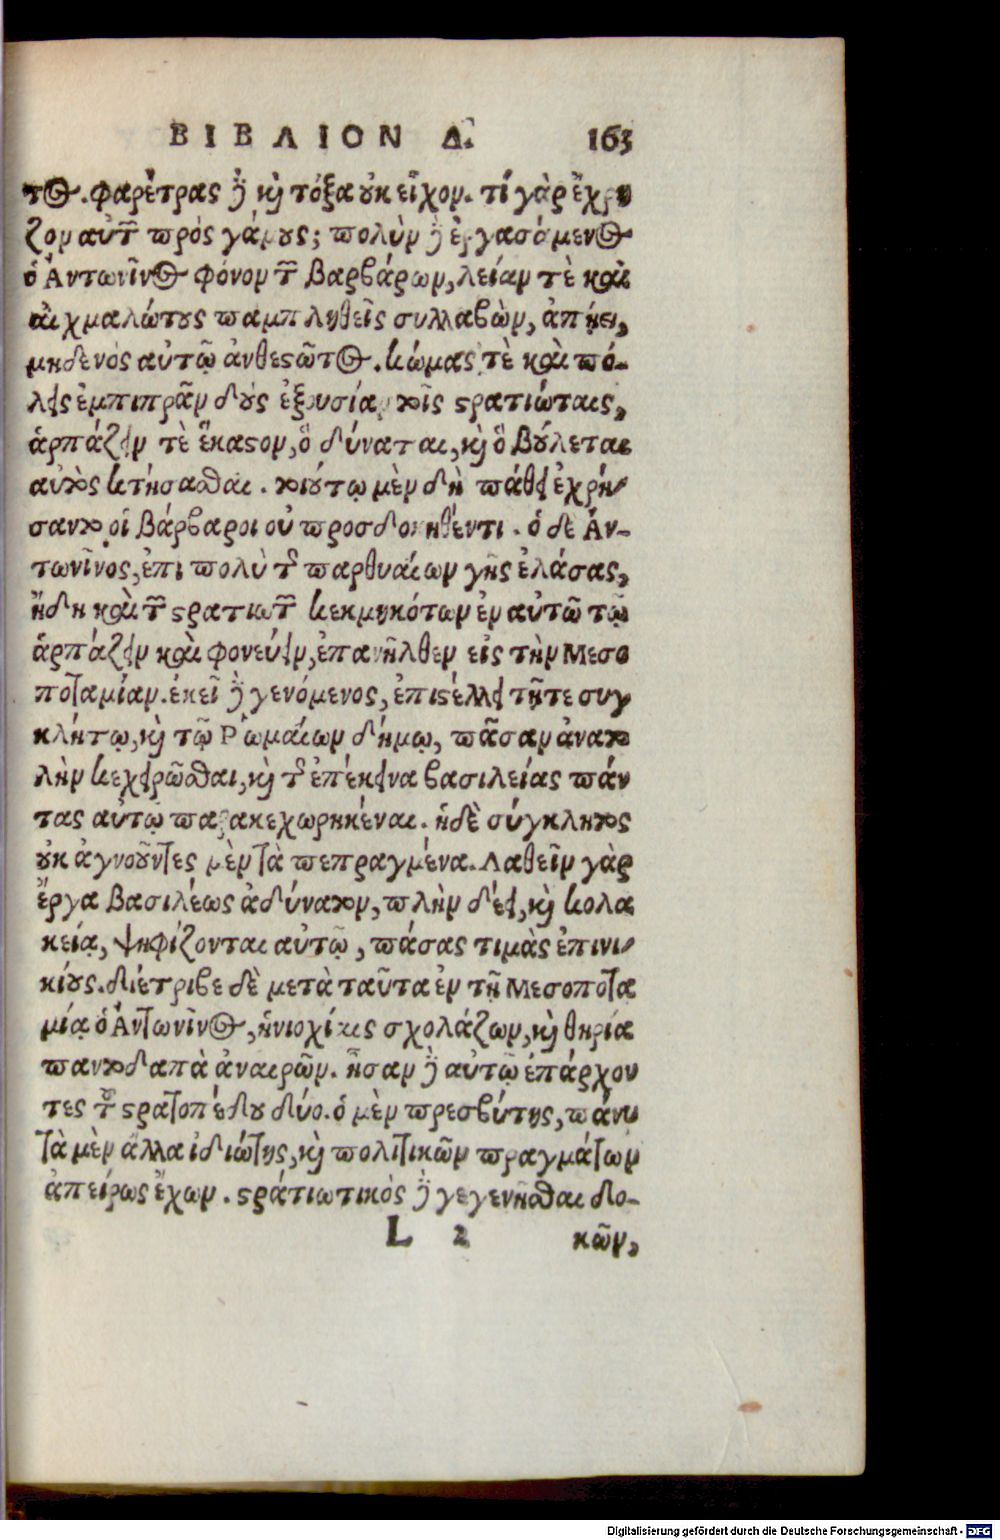 ΒΙΒΛΙΟΝ Δ. 163
τος. φαρέτρας δὲ καὶ τόξα οὐκ εἶχον. τί γὰρ ἔχρῃ
ζον αὐτῶν πρὸς γάμους; πολὺν δὲ ἐργασάμενος
ὁ Ἀντωνῖνος φόνον τῶν βαρβάρων, λείαν τὲ καὶ
αἰχμαλώτους παμπληθεῖς συλλαβὼν, ἀπῄει,
μηδενός αὐτῷ ἀνθεστῶτος. κώμας τὲ καὶ πό-
λεις ἐμπιπρᾶν δοὺς ἐξουσίαν τοῖς στρατιώταις,
ἁρπάζειν τὲ ἕκαστον, ὃ δύναται, καὶ ὃ βούλεται
αὐτὸς κτήσασθαι. τοιούτῳ μὲν δὴ πάθει ἐχρή-
σαντο οἱ βάρβαροι οὐ προσδοκηθέντι. ὁ δὲ Ἀν-
τωνῖνος, ἐπι πολὺ τῆς παρθυαίων γῆς ἐλάσας,
ἤδη καὶ τῶν στρατιωτῶν κεκμηκότων ἐν αὐτῶ τῷ
ἁρπάζειν καὶ φονεύειν, ἐπανῆλθεν εἰς τὴν Μεσο
ποταμίαν. ἐκεῖ δὲ γενόμενος, ἐπιστέλλει τῇ τε συγ
κλήτῳ, καὶ τῷ Ῥωμαίων δήμῳ, πᾶσαν ἀνατο
λὴν κεχειρῶσθαι, καὶ τῆς ἐπέκεινα βασιλείας πάν
τας αὐτῷ παρακεχωρηκέναι. ἡ δὲ σύγκλητος
οὐκ ἀγνοοῦντες μὲν τὰ πεπραγμένα. Λαθεῖν γὰρ
ἔργα βασιλέως ἀδύνατον, πλὴν δέει, καὶ κολα
κείᾳ, ψηφίζονται αὐτῷ, πάσας τιμὰς ἐπινι-
κίους. διέτριβε δὲ μετὰ ταῦτα ἐν τῇ Μεσοποτα
μίᾳ ὁ Ἀντωνῖνος, ἡνιοχίαις σχολάζων, καὶ θηρία
παντοδαπὰ ἀναιρῶν. ἦσαν δὲ αὐτῷ ἐπάρχον
τες τοῦ στρατοπέδου δύο. ὁ μὲν πρεσβύτης, πάνυ
τὰ μὲν ἄλλα ἰδιώτης, καὶ πολιτικῶν πραγμάτων
ἀπείρως ἔχων. στρατιωτικὸς δὲ γεγενῆσθαι δο-
L 2 κῶν,
Digitalisierung gefördert durch die Deutsche Forschungsgemeinschaft - DFG